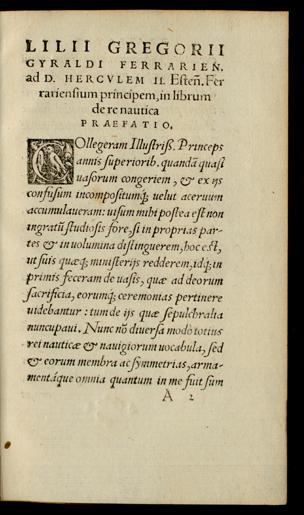 LILII GREGORII
GYRALDI FERRARIEŃ.
ad D. HERCVLEM II. Esteń. Fer
rariensium principem, in librum
de re nautica
PRAEFATIO.
COllegeram Illustriss. Princeps
annis superiorib. quandā quasi
uasorum congeriem, & ex ijs
confusum incompositumq́; uelut aceruum
accumulaueram: uisum mihi postea est non
ingratū studiosis fore, si in proprias par-
tes & in uolumina distinguerem, hoc est,
ut suis quæq; ministerijs redderem, idq́; in
primis feceram de uasis, quæ ad deorum
sacrificia, eorumq́; ceremonias pertinere
uidebantur: tum de ijs quæ sepulchralia
nuncupaui. Nunc nō diuersa modò totius
rei nauticæ & nauigiorum uocabula, sed
& eorum membra ac symmetrias, arma-
mentáque omnia quantum in me fuit sum
A 2